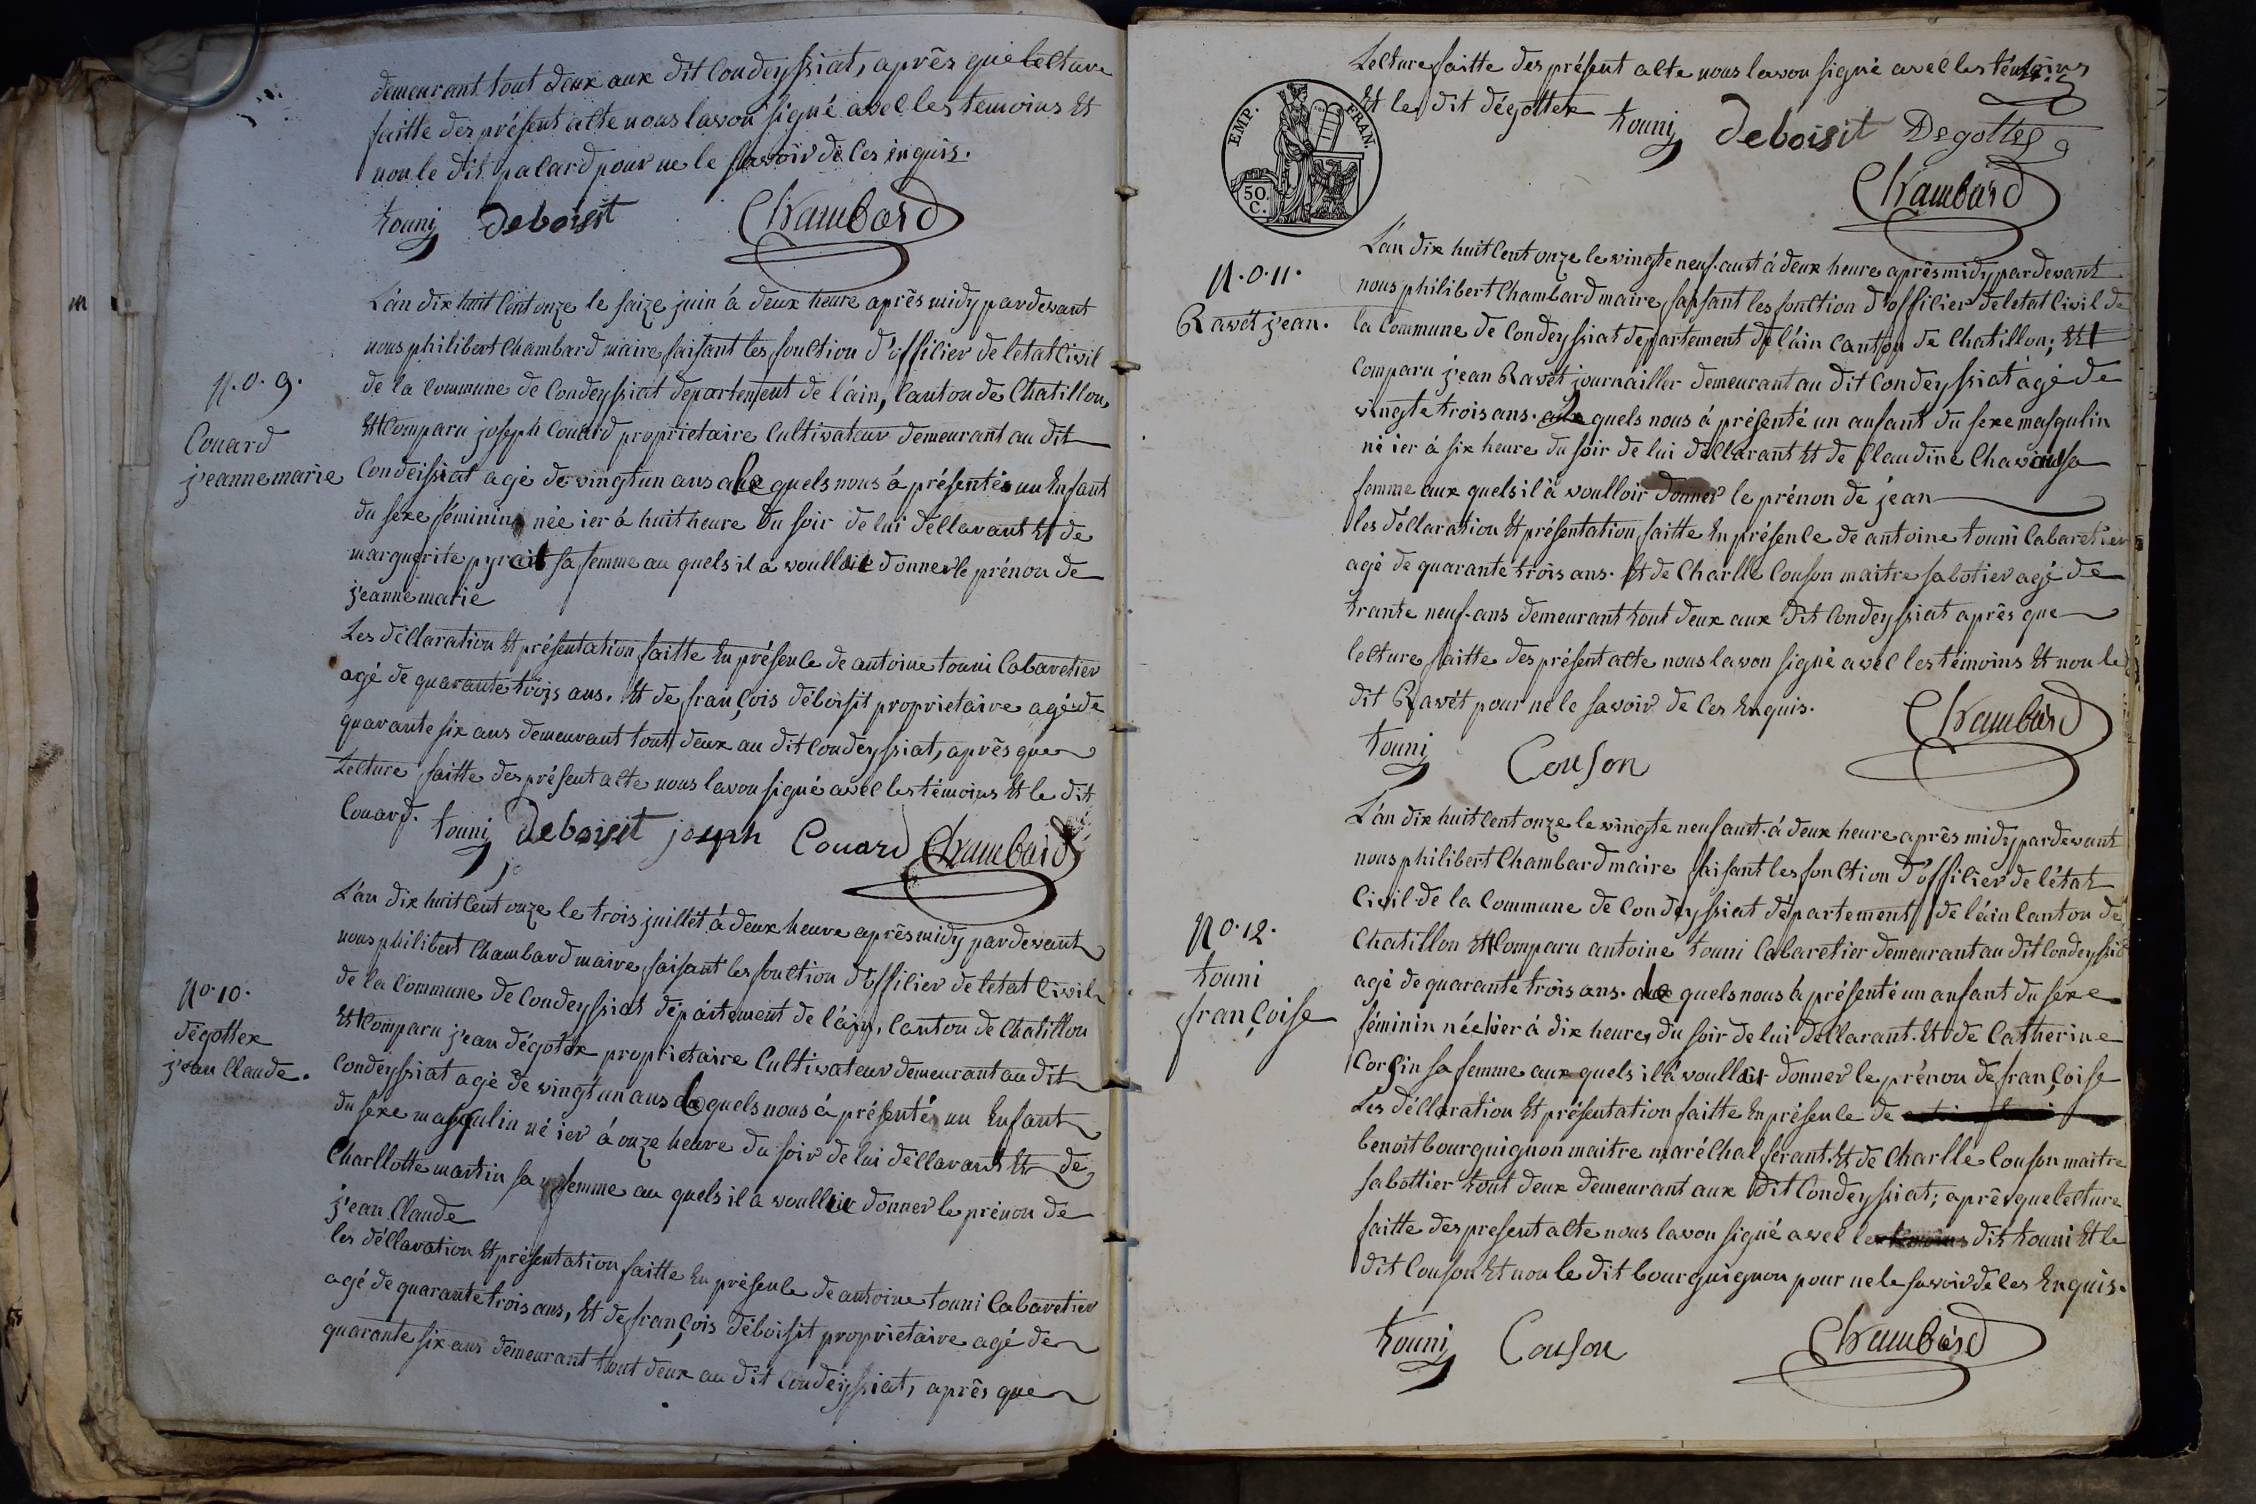 demeurant tout deux aux dit Condeyssiat, après que lecture
faitte des présent acte nous lavon signé avec les temoins et
non le dit palard pour ne le savoir de ces inquis.
touni deboisit Chambard
L'án dix huit cent onze le saize juin à deux heure aprês midy pardevant
nous philibert Chambard maire faisant les fonction d'officier de letat Civil
de la Commune de Condeyssiat departement de láin, Canton de Chatillon,
N.o. 9.
Couard
jeanne marie
Et Comparu joseph Couard proprietaire Cultivateur demeurant au dit
Condeissiat agé de vingt un ans quels nous á présenté un Enfant
du sexe féminin née ier á huit heure du soir de lui déclarant Et de
marguerite sa femme au quels il a voulloir donner le prénon de
jeanne marie
Les déclaration Et présentation faitte En présence de antoine touni Cabaretier
agé de quarante trois ans. Et de françois déboisit proprietaire agé de
quarante six ans demeurant tout deux au dit Condeyssiat, aprês que
Lecture faitte des présent acte nous lavon signé avec les témoins Et le dit
Couard. touni deboisit joseph Couard Chambard
L'án dix huit Cent onze le trois juillet á deux heure aprês midy pardevant
nous philibert Chambard maire faisant les fonction d'officier de letat Civil
de la Commune de Condeyssiat département de láin, Canton de Chatillon
No. 10.
dégottex
jean Claude.
Et Comparu jean dégotex proprietaire Cultivateur demeurant au dit
Condeyssiat agé de vingt un ans quels nous á présenté un Enfant
du sexe masqulin né ier á onze heure du soir de lui déclarant Et de
Charllotte martin sa femme au quels il a voulloir donner le prénon de
jean Claude
les déclaration Et présentation faitte En présence de antoine touni Cabaretier
agé de quarante trois ans, Et de françois déboisit proprietaire agé de
quarante six ans demeurant tout deux au dit Condeyssiat, aprês que
Lecture faitte des présent acte nous lavon signé avec les témoins
Et le dit dégottex touni deboisit Degottex
Chambard
EMP. FRAN.
50.
C.
L'án dix huit Cent onze le vingte neuf aust á deux heure aprês midy pardevant
N.o. 11.
Ravét jean.
nous philibert Chambard maire faisant les fonction d'officier de letat Civil de
la Commune de Condeyssiat departement de láin Canton de Chatillon; Et
Comparu jean Ravét journailler demeurant au dit Condeyssiat agé de
vingte trois ans. quels nous á présenté un anfant du sexe masqulin
né ier á six heure du soir de lui déclarant Et de Claudine sa
femme aux quels il á voulloir donner le prénon de jean
les déclaration Et présentation faitte En présence de antoine touni Cabaretier
agé de quarante trois ans. Et de Charlle Couson maitre sabotier agé de
trante neuf ans demeurant tout deux aux dit Condeyssiat aprês que
lecture faitte des présent acte nous lavon signé avec les témoins Et non le
dit Ravét pour ne le savoir de Ces Enquis.
touni Couson Chambard
L'án dix huit Cent onze le vingte neuf aust á deux heure aprês midy pardevant
nous philibert Chambard maire faisant les fonction d'officier de létat
Civil de la Commune de Condeyssiat département de láin Canton de
No. 12.
touni
françoise
Chatillon Et Comparu antoine touni Cabaretier demeurant au dit Condeyssiat
agé de quarante trois ans. quels nous á présenté un anfant du sexe
féminin née hier á dix heures du soir de lui déclarant. Et de Catherine
Corsin sa femme aux quels il á voulloir donner le prénon de françoise
Les déclaration Et présentation faitte En présence de
benoit bourguignon maitre maréchal ferant. Et de Charlle Couson maitre
sabottier tout deux demeurant aux dit Condeyssiat; aprês que lecture
faitte des present acte nous lavon signé avec les témoins dit touni Et le
dit Couson Et non le dit bourguignon pour ne le savoir de Ces Enquis.
touni Couson Chambard